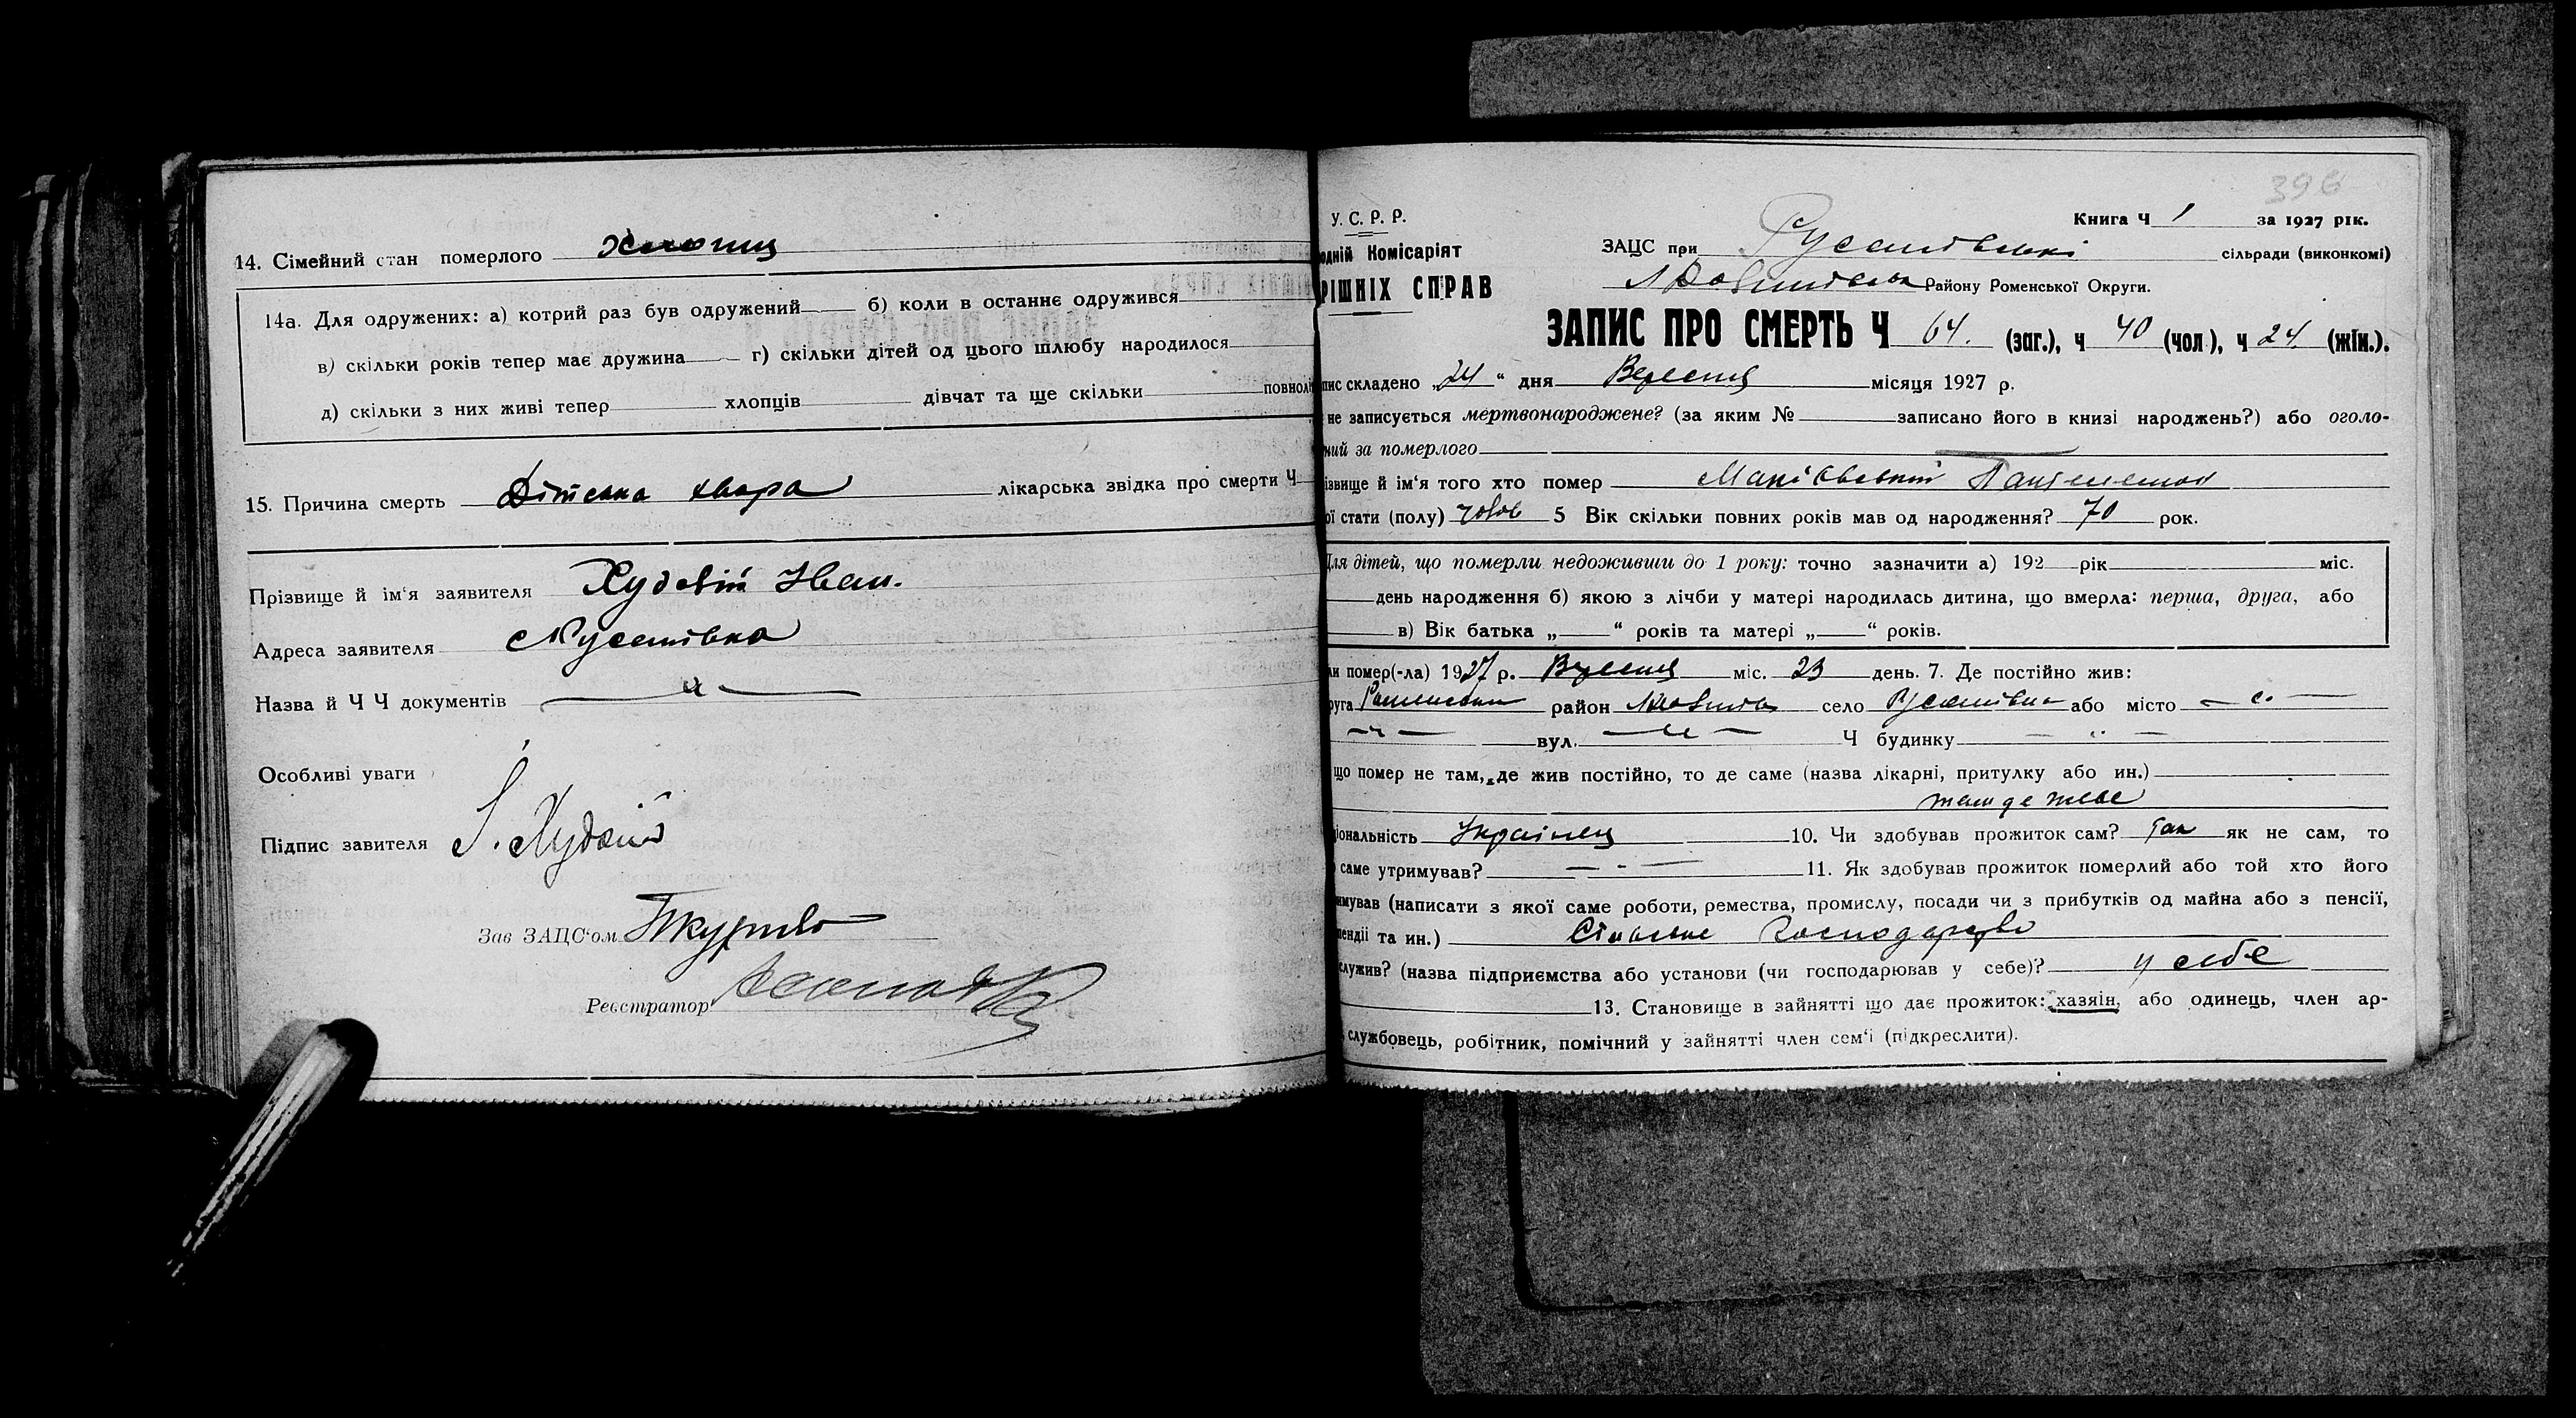 14. Сімейний стан померлого хлопиц
14а. Для одружених: а) котрий раз був одружений б) коли в останнє одружився
в) скільки років тепер має дружина г) скільки дітей од цього шлюбу народилося
д) скільки з них живі тепер хлопців дівчат та ще скільки повноліт
15. Причина смерть Дітська хвора лікарська звідка про смерти Ч
Прізвище й ім'я заявителя Худовій Иван.
Адреса заявителя Русанівка
Назва й Ч Ч документів
Особливі уваги
Підпис завителя
Зав ЗАЦС'ом
Реєстратор
396
У. С. Р. Р.
Книга Ч 1 за 1927 рік.
одній Комісаріят
ЗАЦС при Русанівські сільради (виконкомі)
РІШНІХ СПРАВ
Району Роменської Округи.
ЗАПИС ПРО СМЕРТЬ Ч 64. (заг.), ч 40 (чол), ч 24 (жін.).
пис складено „24“ дня Вересня місяця 1927 р.
не записується мертвонароджене? (за яким № записано його в книзі народжень?) або оголо-
ний за померлого
ізвище й ім'я того хто помер
ої стати (полу) чолов 5 Вік скільки повних років мав од народження? 70 рок.
Для дітей, що померли недоживши до 1 року: точно зазначити а) 192 рік міс.
день народження б) якою з лічби у матері народилась дитина, що вмерла: перша, друга, або
в) Вік батька „ “ років та матері „ “ років.
ли помер(-ла) 1927 р. Вересня міс. 23 день. 7. Де постійно жив:
руга Роменська район село Русанівка або місто
вул. Ч будинку
що помер не там, де жив постійно, то де саме (назва лікарні, притулку або ин.)
там де живе
іональність Українец 10. Чи здобував прожиток сам? Так як не сам, то
саме утримував? 11. Як здобував прожиток померлий або той хто його
имував (написати з якої саме роботи, ремества, промислу, посади чи з прибутків од майна або з пенсії,
пендії та ин.) Сільське Господарство
служив? (назва підприємства або установи (чи господарював у себе)? у себе
13. Становище в зайнятті що дає прожиток: хазяін, або одинець, член ар-
службовець, робітник, помічний у зайнятті член сем'ї (підкреслити).